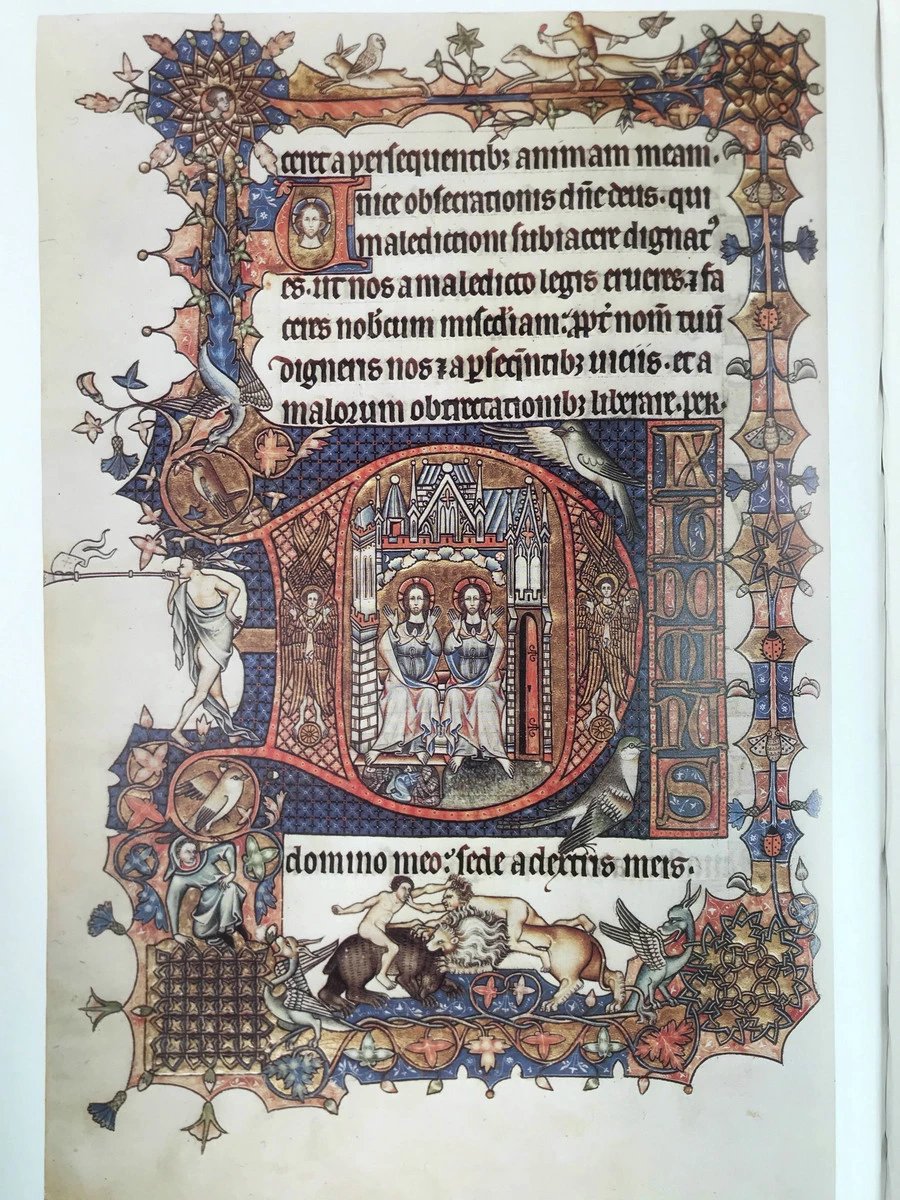 ceret a persequentibꝫ animam meam.
Unice obsecrationis dn̄e deus. qui
maledictioni subiacere dignatꝰ
es. ut nos a maledicto legis erueres. ⁊ fa
ceres nob̾cum mis̄cdiam: ꝓpt̾ nom̄ tuū
digneris nos ⁊ a ꝑseq̄ntibꝫ uiciis. et a
malorum obtrectationibꝫ liberare. per.
D
IX
IT
DO
MI
NU
S
domino meo: sede a dextris meis.